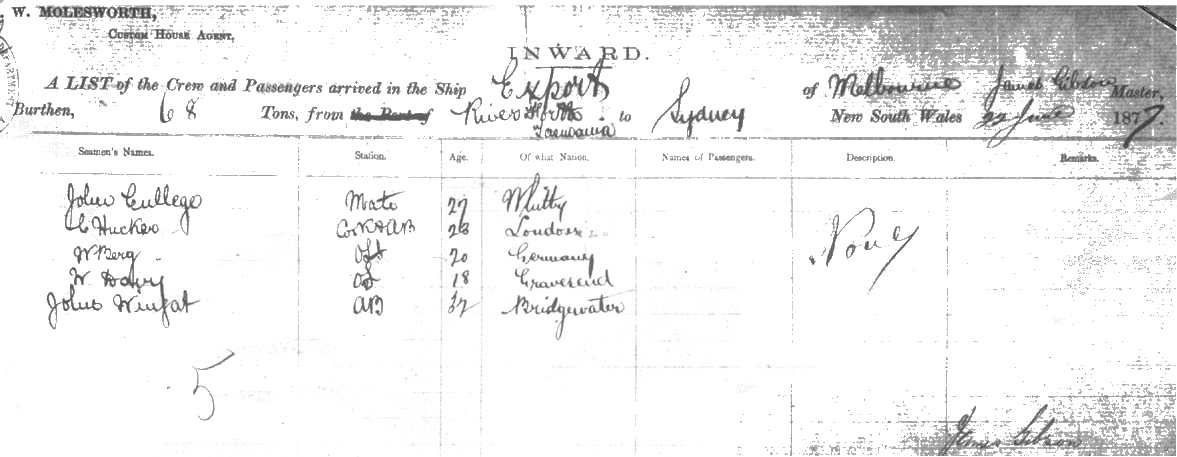 W. MOLESWORTH,
CUSTOM HOUSE AGENT,
INWARD.
A LIST of the Crew and Passengers arrived in the Ship Export of Melbourne James Gibson Master,
Burthen, 68 Tons, from the Port of River Forth to Sydney New South Wales 22 June 1877.
Seamen's Names. Station. Age. Of what Nation. Names of Passengers. Description. Remarks.
John Cullege Mate 27 Whitby
C Hucker Cook & AB 23 London
W Berg OS 20 Germany
W Davy OS 18 Gravesend
John AB Bridgewater
None
5
James Gibson